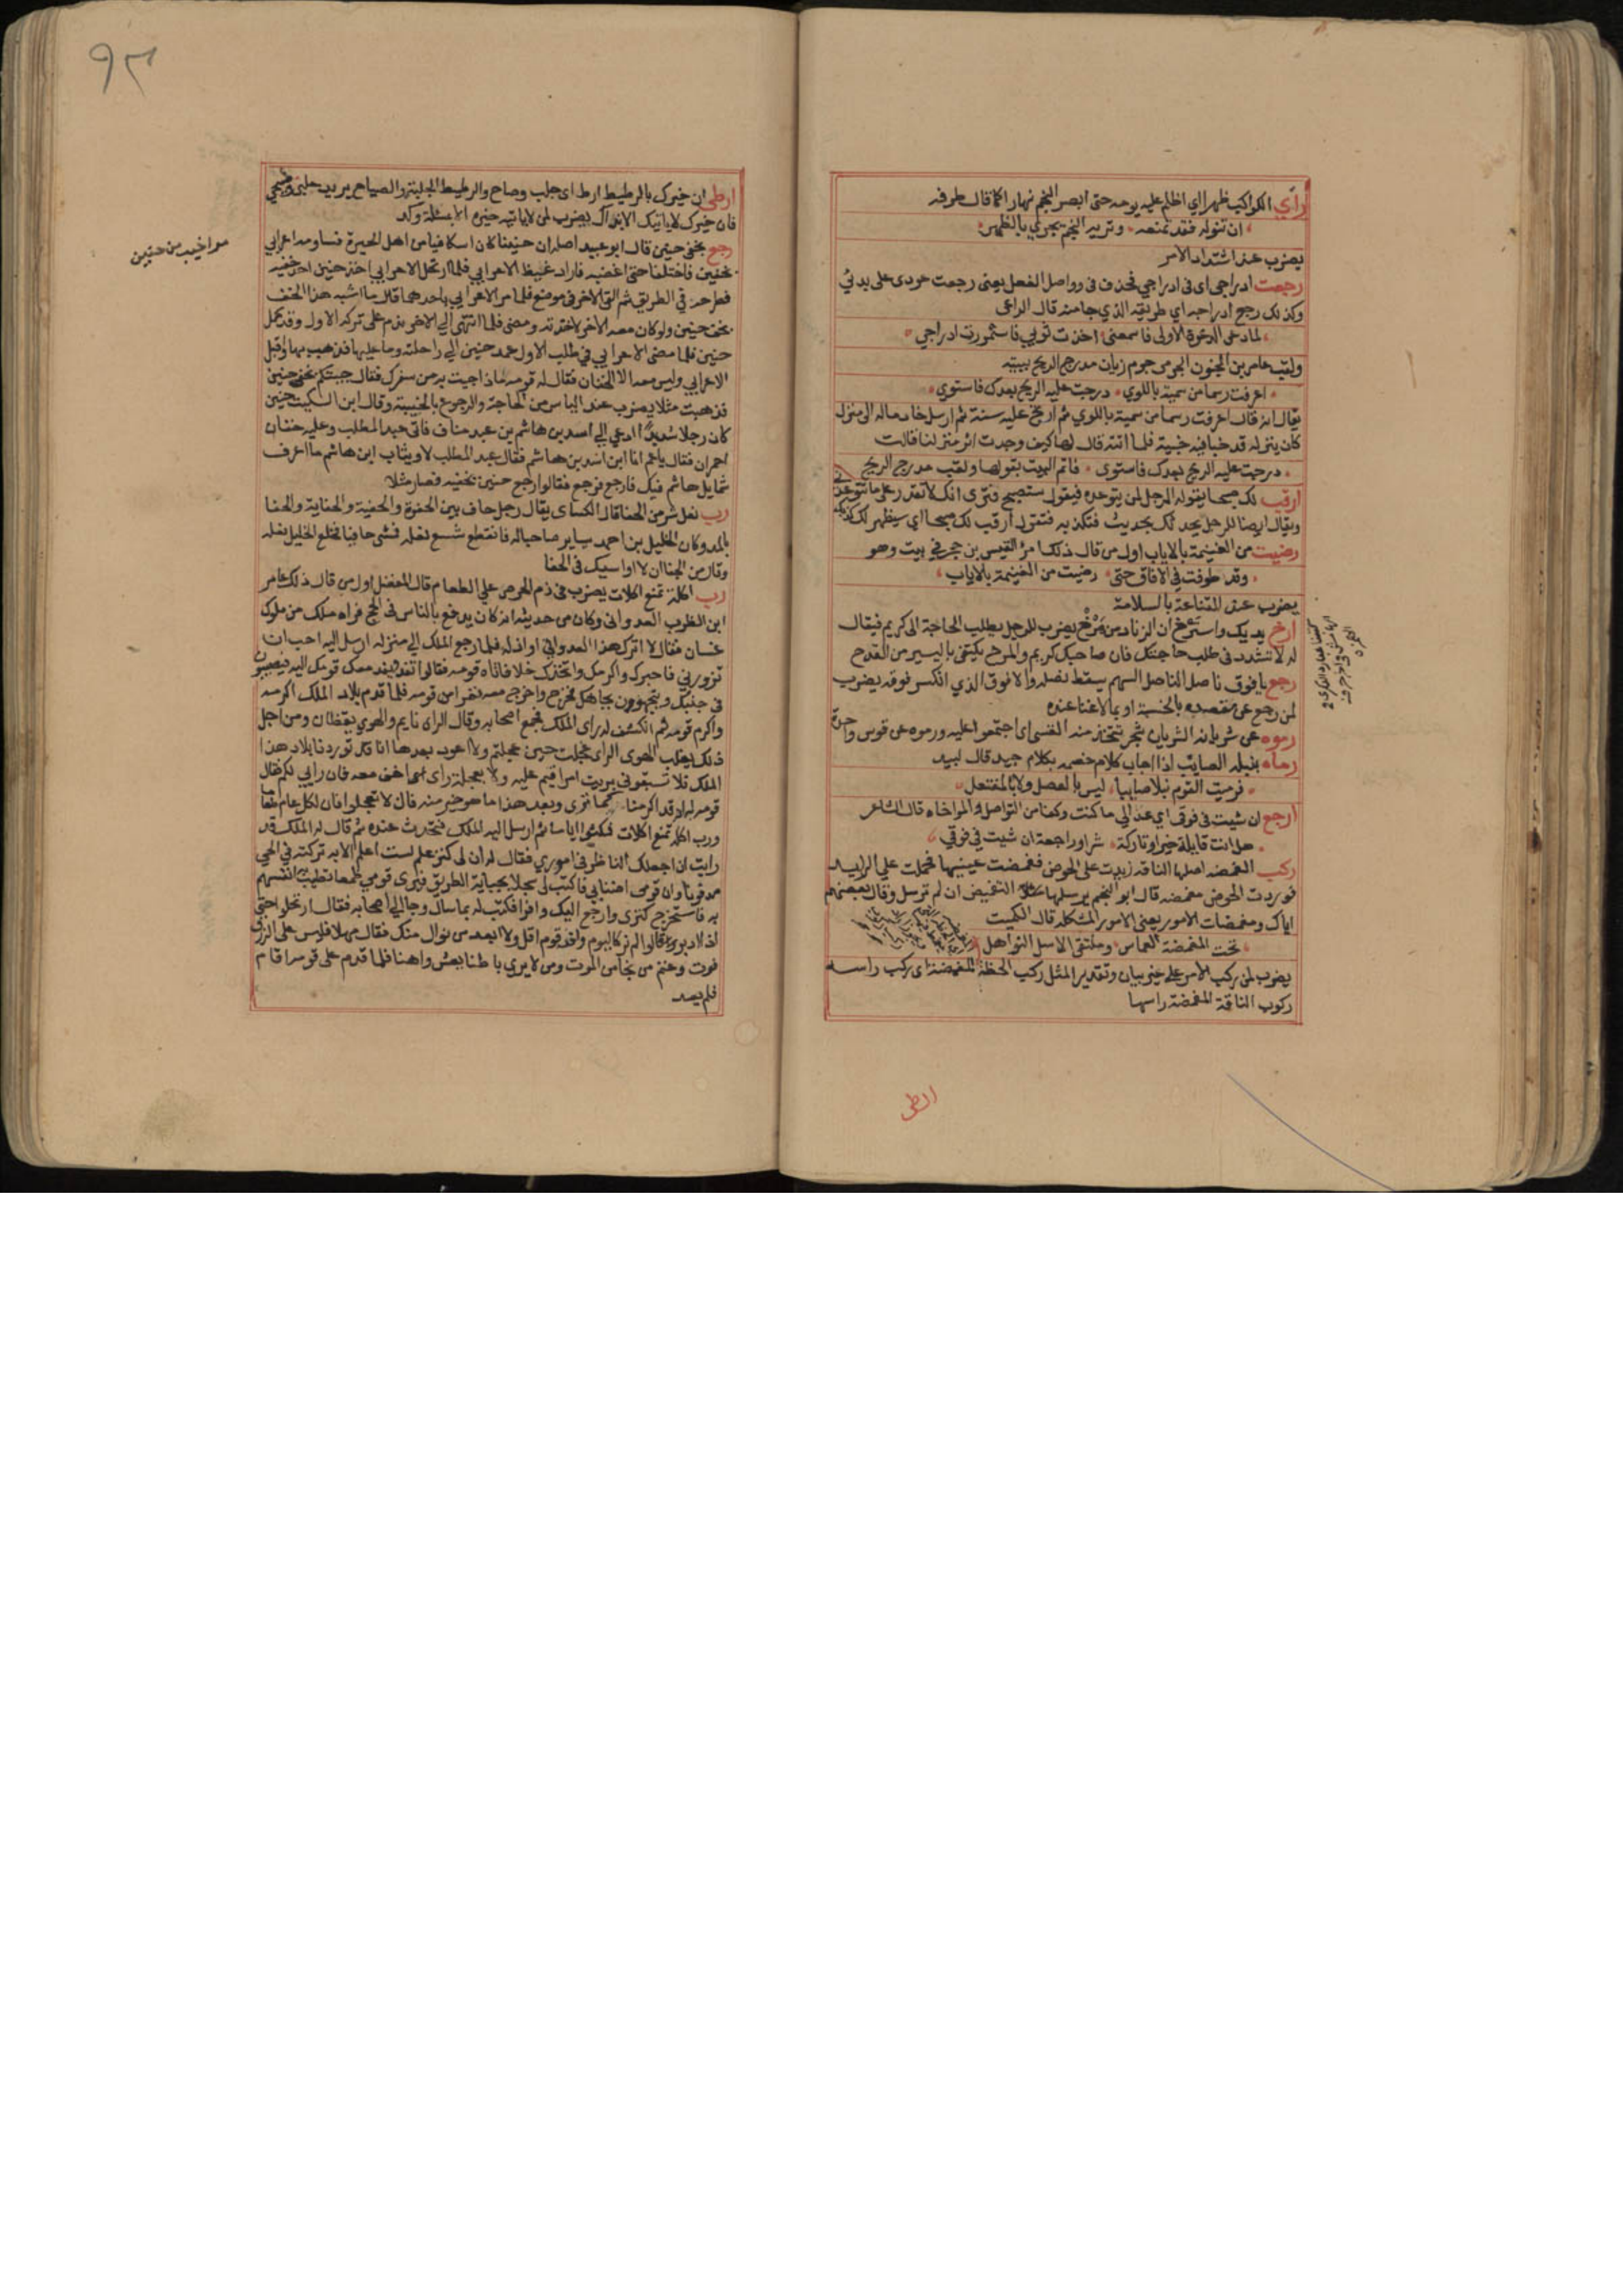 رأي الكواكب ظهرا اي اظلم عليه يومه حتى ابصر النجم نهارا كما قال طرفه
ان تنوله فقد تمنعه وتريه النجم يجري بالظهر
يضرب عند اشتداد الامر
رجعت ادراجي اي في ادراجي فحذف في وواصل الفعل يعنى رجعت عودى على بدئي
وكذلك رجع ادراجه اي طريقه الذي جا منه قال الراعى
لما دعى الدعوة الاولى فاسمعنى اخذت ثوبي فاستمررت ادراجي
ولقب عامر بن المجنون الجرمى جرم زبان مدرج الريح ببيته
اعرفت رسما من سمية باللوي درجت عليه الريح بعدك فاستوي
يقال انه قال اعرفت رسما من سمية باللوي ثم ارتج عليه سنة ثم ارسل خادما له الى منزل
كان ينزله قد خبا فيه خبية فلما اتته قال لها كيف وجدت اثر منزلنا قالت
درجت عليه الريح بعدك فاستوى فاتم البيت بقولها ولقب مدرج الريح
ارقب لك صبحا يقوله الرجل لمن يتوعده فيقول ستصبح فترى انك لا تقدر على ما تتوعدني
ويقال ايضا للرجل يحدثك بحديث فتكذبه فتقول ارقب لك صبحا اي سيظهر لك كذبك
رضيت من الغنيمة بالاياب اول من قال ذلك امرؤ القيس بن حجر في بيت وهو
وقد طوفت في الافاق حتى رضيت من الغنيمة بالاياب
يضرب عند القناعة بالسلامة
ارخ يديك واسترخ ان الزناد من مرخ يضرب للرجل يطلب الحاجة الى كريم فيقال
له لا تتشدد في طلب حاجتك فان صاحبك كريم والمرخ يكتفي باليسير من القدح
رجع بافوق ناصل الناصل السهم سقط نصله والافوق الذي انكسر فوقه يضرب
لمن رجع عن مقصده بالخسية او بما لا غنا عنده
رموه عن شريانه الشريان شجر تتخذ منه القسى اي اجتمعوا عليه ورموه عن قوس واحدة
رماه بنبله الصايب اذا اجاب كلام خصمه بكلام جيد قال لبيد
فرميت القوم نبلا صايبا ليس بالعصل ولا بالمفتعل
ارجع ان شيت في فوقى اي عد الي ما كنت وكنا من التواصل والمواخاه قال الشاعر
هل انت قايلة خيرا وتاركة شرا وراجعة ان شيت في فوقي
ركب المغمضه اصلها الناقه زيدت على الحوض فغمضت عينيها فحملت علي الرايد
فوردت الحوض مغمضه قال ابو النجم يرسلها التغميض ان لم ترسل وقال بعضهم
اياك ومغمضات الامور يعنى الامور المشكله قال الكميت
تحت المغمضة العماس وملتقى الاسل النواهل
يضرب لمن ركب الامر على غير بيان وتقدير المثل ركب الخطة المغمضة اي ركب راسه
ركوب الناقة المغمضة راسها
ارطى
٩٣
ارطى ان خيرك بالرطيط ارط اى جلب وصاح والرطيط الجلبة والصياح يريد جلبى وصيحي
فان خيرك لا ياتيك الا بذاك يضرب لمن لا ياتيه خيره الا بمسئلة وكد
رجع بخفي حنين قال ابو عبيد اصله ان حنينا كان اسكافيا من اهل الحيرة فساومه اعرابي
بخفين فاختلفا حتى اغضبه فاراد غيظ الاعرابي فلما ارتحل الاعرابي اخذ حنين احد خفيه
فطرحه في الطريق ثم القى الاخر في موضع فلما مر الاعرابي باحدهما قال ما اشبه هذا الخف
بخف حنين ولو كان معه الاخر لاخذته ومضى فلما انتهى الي الاخر ندم على تركه الاول وقد كمن
حنين فلما مضى الاعرابي في طلب الاول عمد حنين الي راحلته وما عليها فذهب بها واقبل
الاعرابي وليس معه الا الخفان فقال له قومه ماذا جيت به من سفرك فقال جيتكم بخفي حنين
فذهبت مثلا يضرب عند الياس من الحاجة والرجوع بالخيبة وقال ابن السكيت حنين
كان رجلا شديدا ادعي الي اسد بن هاشم بن عبد مناف فاتى عبد المطلب وعليه خفان
احمران فقال يا عم انا ابن اسد بن هاشم فقال عبد المطلب لا وثياب ابن هاشم ما اعرف
شمايل هاشم فيك فارجع فرجع فقالوا رجع حنين بخفيه فصار مثلا
رب نعل شر من الحفا قال الكساى يقال رجل حاف بين الحفوة والحفية والحفاية والحفا
بالمد وكان الخليل بن احمد يساير صاحبا له فانقطع شسع نعله فمشى حافيا فخلع الخليل نعله
وقال من الجفا ان لا اواسيك في الحفا
رب اكلة تمنع اكلات يضرب في ذم الحرص علي الطعام قال المفضل اول من قال ذلك عامر
ابن الظرب العدواني وكان من حديثه انه كان يدفع بالناس في الحج فراه ملك من ملوك
غسان فقال لا اترك هذا العدواني او اذله فلما رجع الملك الي منزله ارسل اليه احب ان
تزورني فاحبوك واكرمك واتخذك خلا فاتاه قومه فقالوا تفد ويفد معك قومك اليه فيصيبون
في جنبك ويتجهون بجاهك فخرج واخرج معه نفرا من قومه فلما قدم بلاد الملك اكرمه
واكرم قومه ثم انكشف له راى الملك فجمع اصحابه وقال الراى نايم والهوى يقظان ومن اجل
ذلك يغلب الهوى الراى عجلت حين عجلتم ولا اعود بعدها انا قد توردنا بلاد هذا
الملك فلا تسبقوني بريث امر اقيم عليه ولا بعجلة راى اخف معه فان رايي لكم فقال
قومه له قد اكرمنا كما ترى وبعد هذا ما هو خير منه قال لا تعجلوا فان لكل عام طعاما
ورب اكلة تمنع اكلات فمكثوا اياما ثم ارسل اليه الملك فتحدث عنده ثم قال له الملك قد
رايت ان اجعلك الناظر في اموري فقال له ان لي كنز علم لست اعلم الا به تركته في الحي
مدفونا وان قومى اضنا بي فاكتب لي سجلا بجباية الطريق فيرى قومي طمعا تطيب به انفسهم
به فاستخرج كنزى وارجع اليك وافرا فكتب له بما سال وجا الي اصحابه فقال ارتحلوا حتى
اذا ادبروا قالوا لم نر كاليوم وافد قوم اقل ولا ابعد من نوال منك فقال مهلا فليس على الرزق
فوت وغنم من نجا من الموت ومن لا يرى باطنا يعش واهنا فلما قدم على قومه اقام
فلم يعد
مر اخيب من حنين